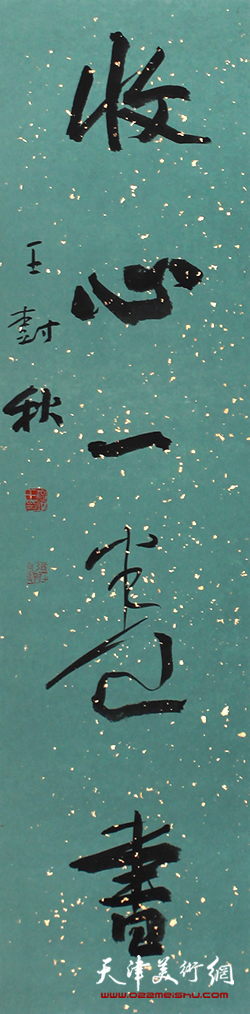 收心一卷書
王樹秋
天津美術網
www.022meishu.com